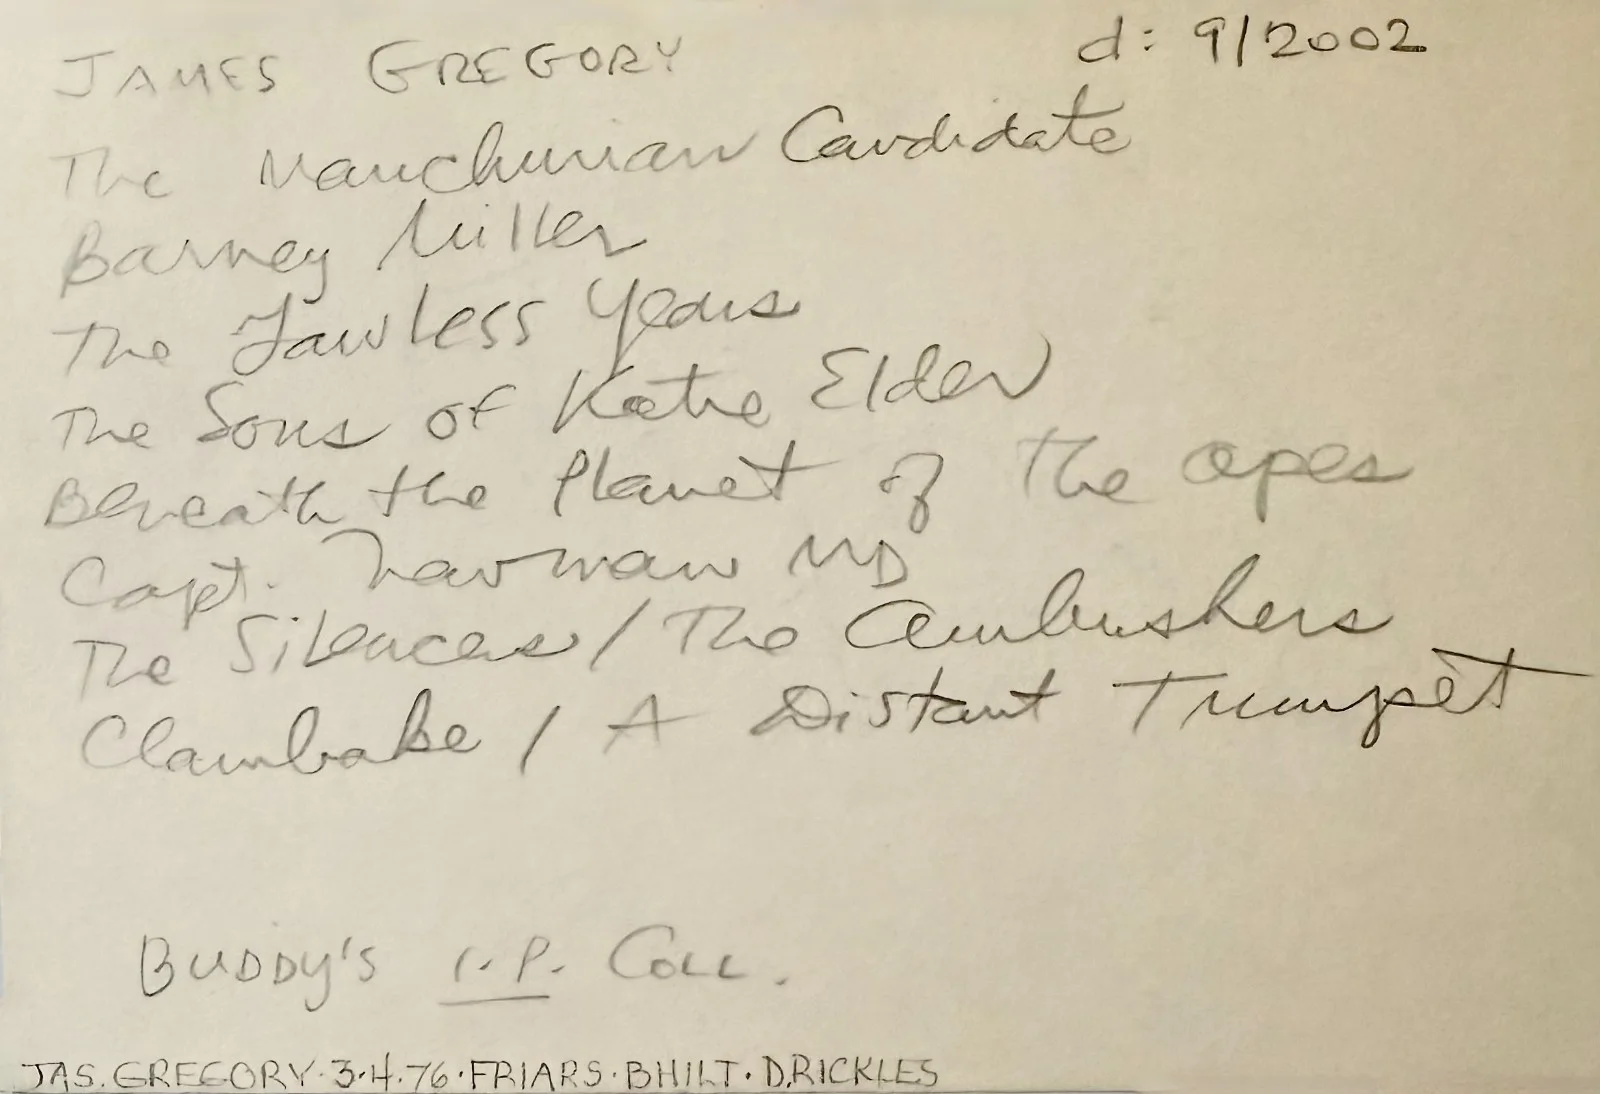 JAMES GREGORY d: 9/2002
The Manchurian Candidate
Barney Miller
The Lawless Years
The Sons of Katie Elder
Beneath the Planet of The apes
Capt. Newman MD
The Silencers / The Ambushers
Clambake / A Distant Trumpet
BUDDY'S I.P. COLL.
JAS. GREGORY·3·4·76·FRIARS·BHILT·D.RICKLES